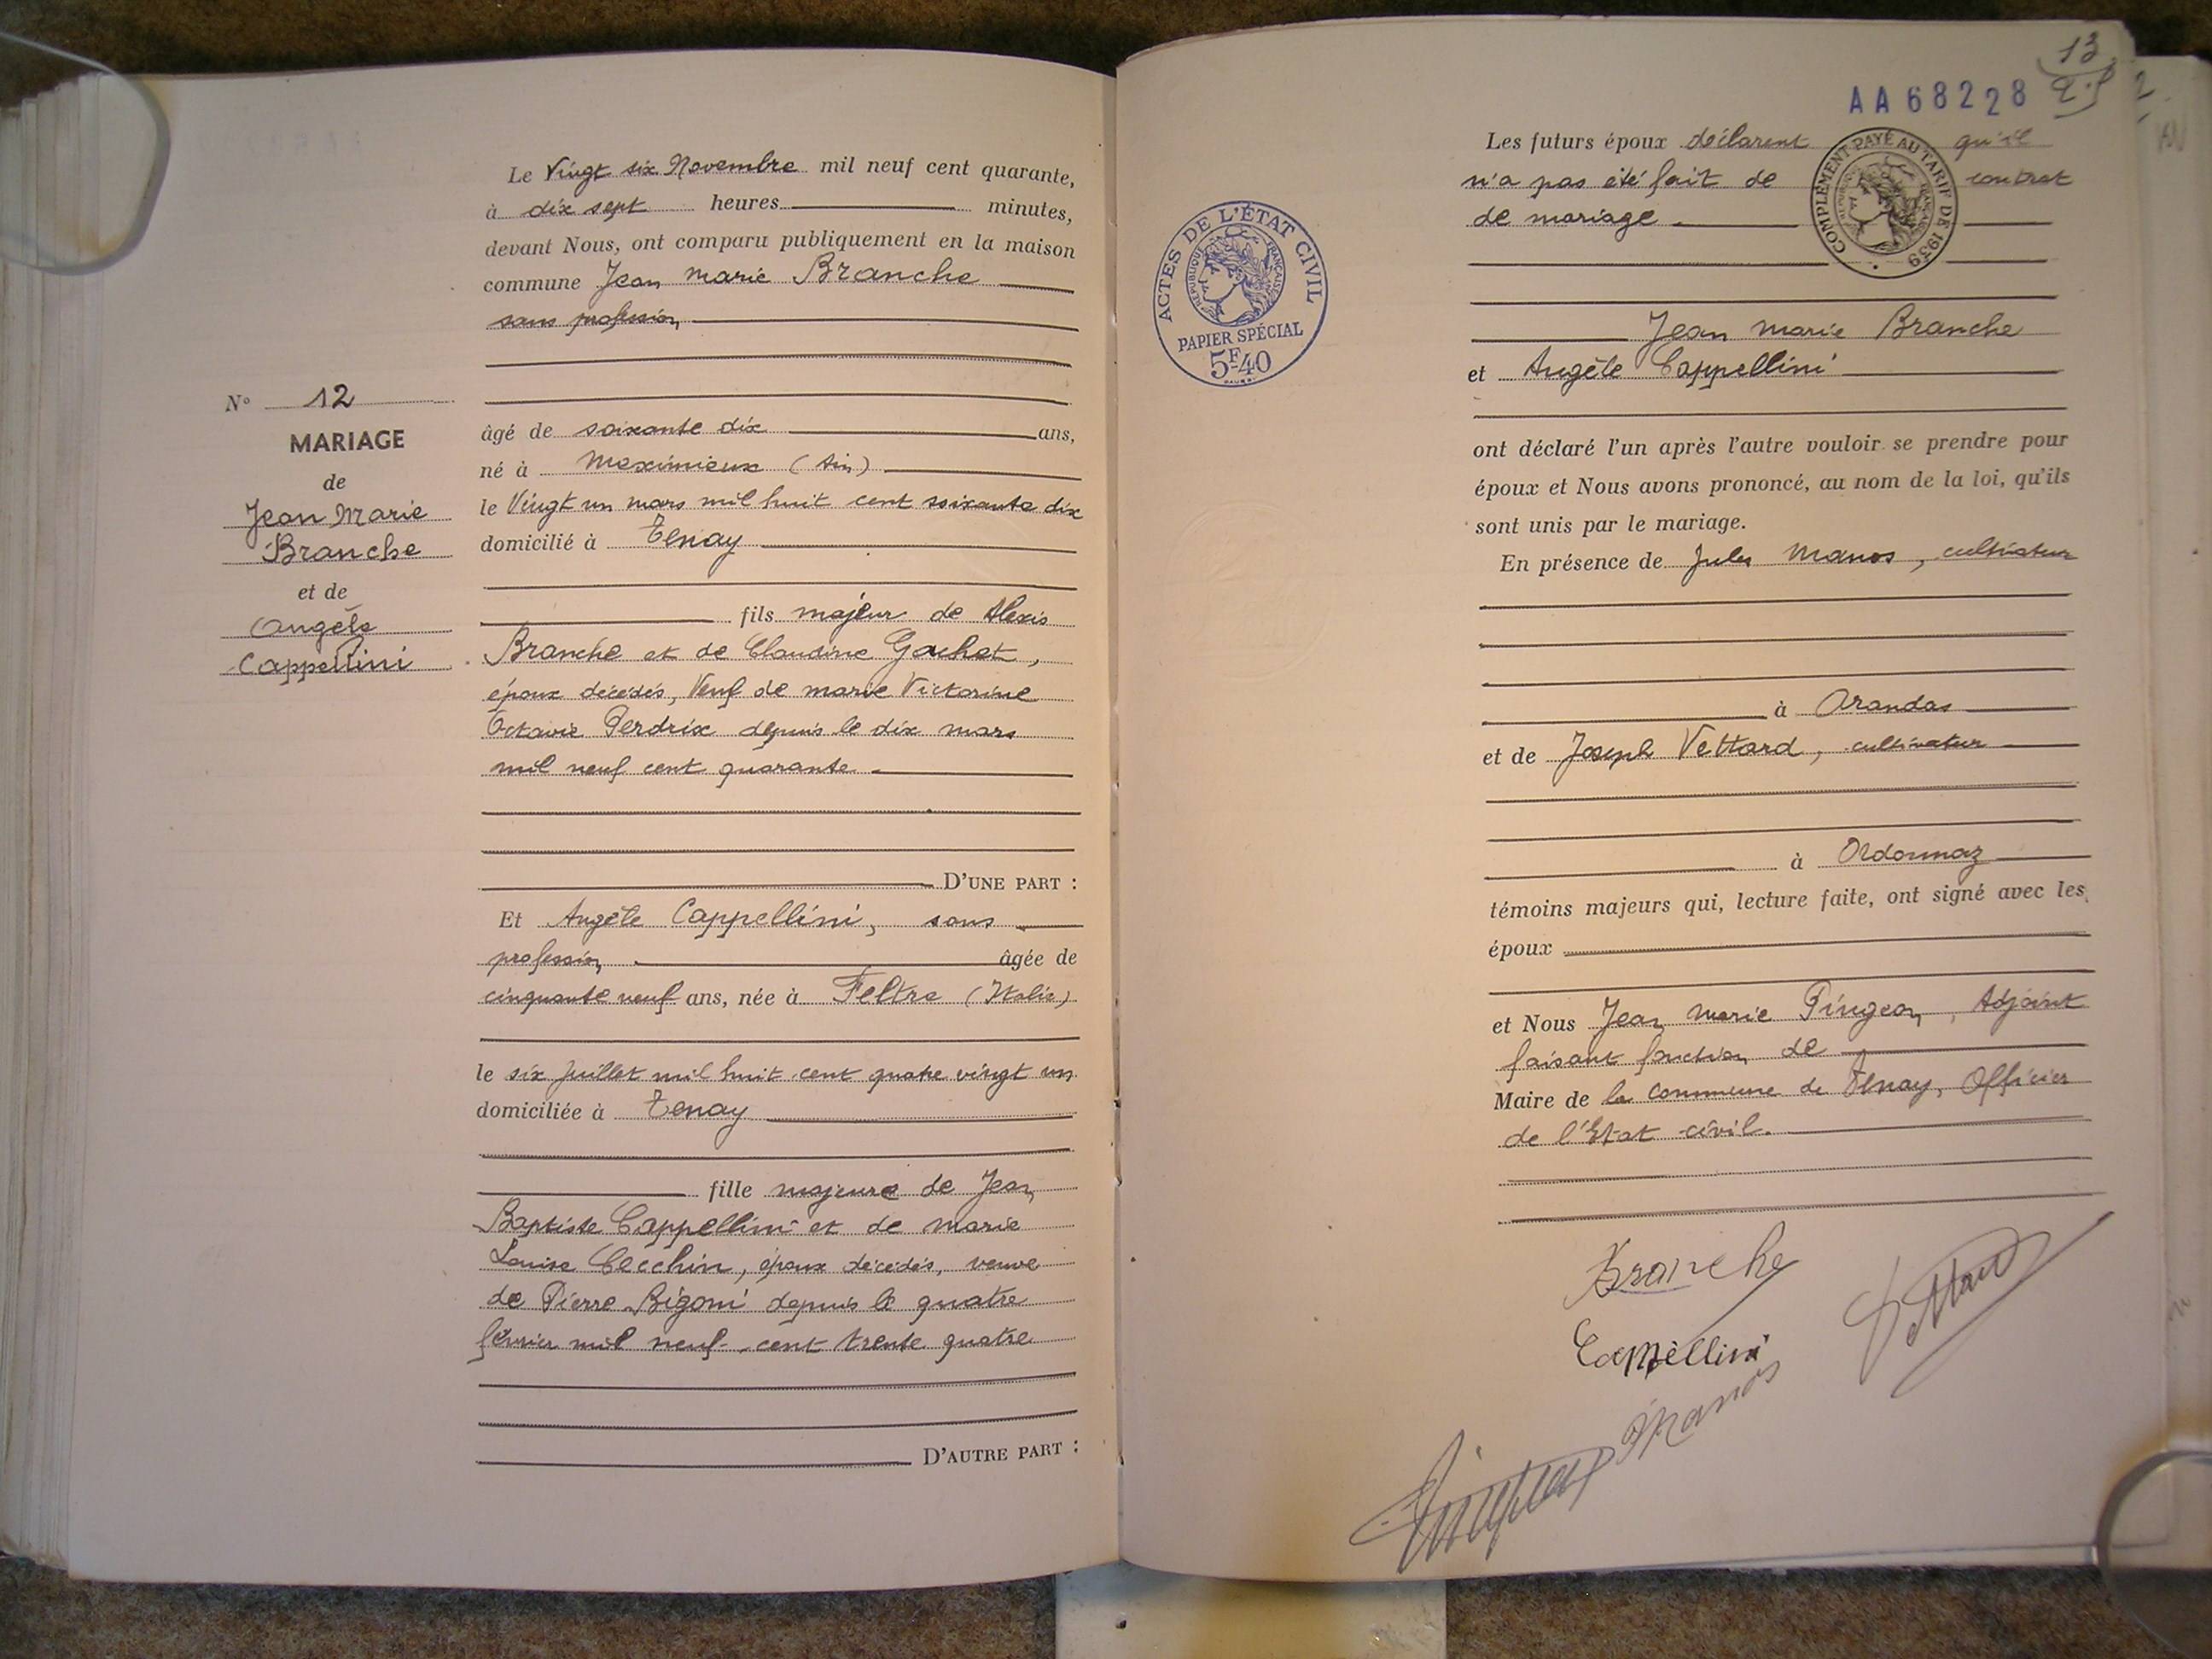 Le Vingt six Novembre mil neuf cent quarante,
à dix sept heures minutes,
devant Nous, ont comparu publiquement en la maison
commune Jean Marie Branche
sans profession
N° 12
MARIAGE
de
Jean Marie
Branche
et de
Angèle
Cappellini
âgé de soixante dix ans,
né à Meximieux (Ain)
le Vingt un mars mil huit cent soixante dix
domicilié à Tenay
fils majeur de Alexis
Branche et de Claudine Gachet,
époux décédés, Veuf de marie Victorine
Octavie Perdrix depuis le dix mars
mil neuf cent quarante
D'UNE PART :
Et Angèle Cappellini, sans
profession âgée de
cinquante neuf ans, née à Feltre (Italie)
le six Juillet mil huit cent quatre vingt un
domiciliée à Tenay
fille majeure de Jean
Baptiste Cappellini et de marie
Louise Cecchin, époux décédés, veuve
de Pierre Bigoni depuis le quatre
février mil neuf cent trente quatre
D'AUTRE PART :
13
AA68228
Les futurs époux déclarent qu'il
n'a pas été fait de contrat
de mariage
COMPLÉMENT PAYÉ AU TARIF DE 1939
RÉPUBLIQUE FRANÇAISE
ACTES DE L'ÉTAT CIVIL
RÉPUBLIQUE FRANÇAISE
PAPIER SPÉCIAL
5F40
Jean Marie Branche
et Angèle Cappellini
ont déclaré l'un après l'autre vouloir se prendre pour
époux et Nous avons prononcé, au nom de la loi, qu'ils
sont unis par le mariage.
En présence de Jules Manos, cultivateur
à Arandas
et de Joseph Vettard, cultivateur
à Ordonnaz
témoins majeurs qui, lecture faite, ont signé avec les
époux
et Nous Jean Marie Pingeon, Adjoint
faisant fonction de
Maire de la commune de Tenay, Officier
de l'Etat civil.
Branche
Vettard
Cappellini
Manos
Pingeon